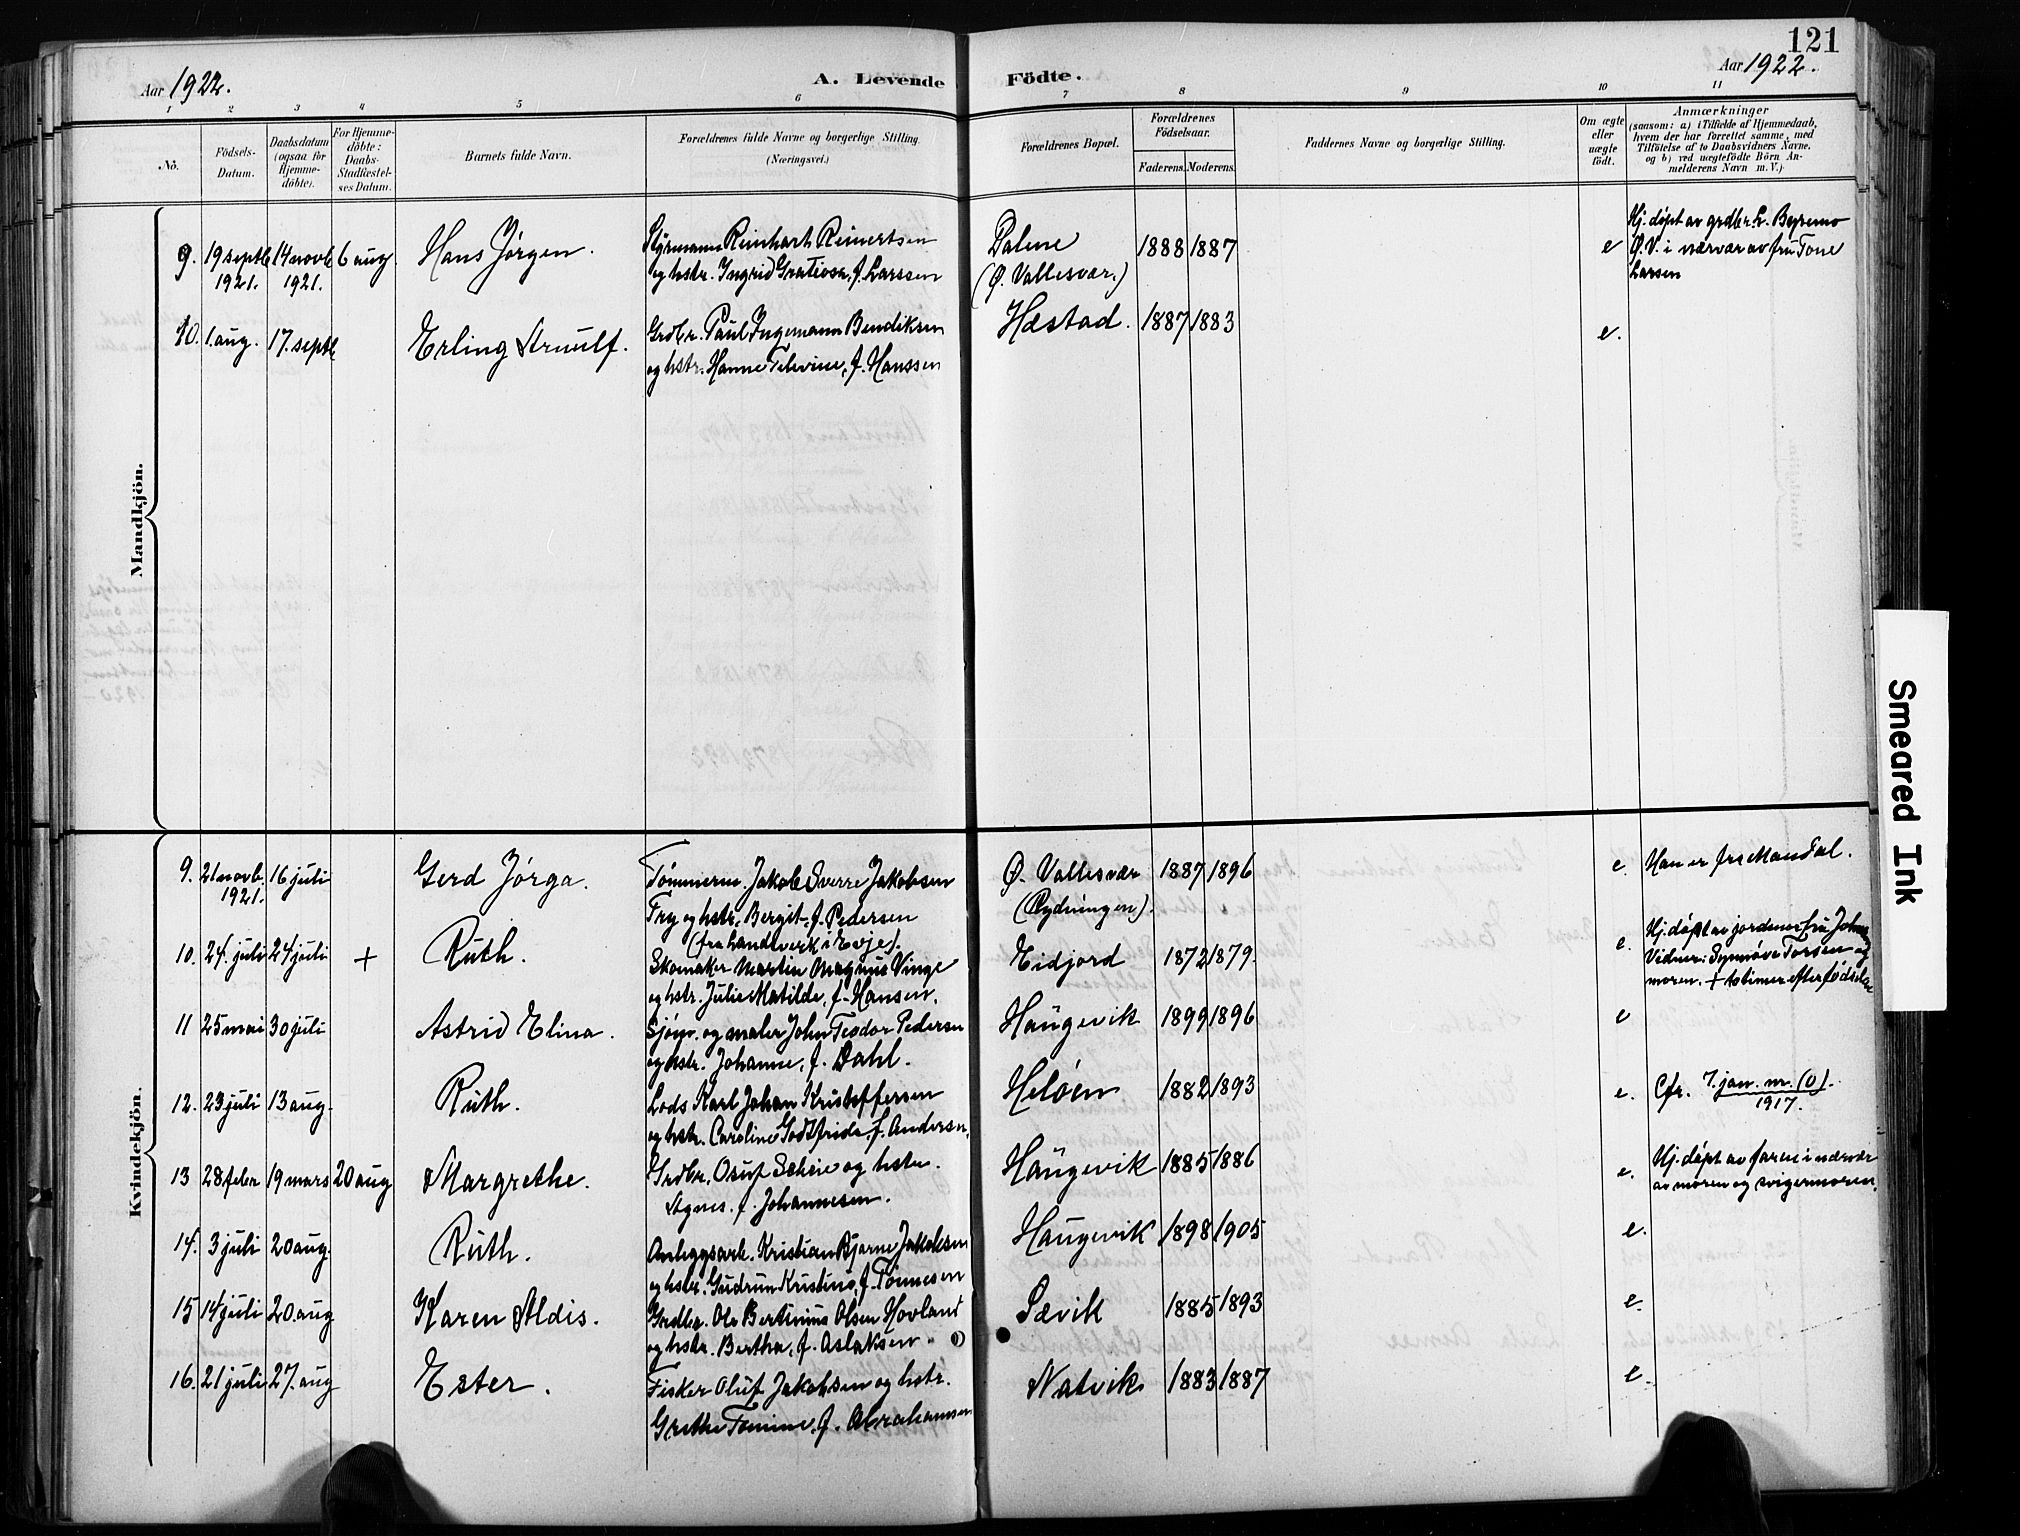 121
Aar 1922.
A. Levende Födte.
Aar 1922.
1 2 3 4 5 6 7 8 9 10 11
Nô.
Födsels-Datum.
Daabsdatum (ogsaa for Hjemme-döbte).
For Hjemme-döbte: Daabs-Stadfæstel-ses Datum.
Barnets fulde Navn.
Forældrenes fulde Navne og borgerlige Stilling. (Næringsvei.)
Forældrenes Bopæl.
Forældrenes Födselsaar.
Faderens. Moderens.
Faddernes Navne og borgerlige Stilling.
Om ægte eller uægte födt.
Anmærkninger
(saasom: a) i Tilfælde af Hjemmedaab,
hvem der har forrettet samme, med
Tilföielse af to Daabsvidners Navne,
og b) ved uægtefödte Börn An-
melderens Navn m. V.)
Mandkjön.
9. 19 septb 1921. 14 novb 1921. 6 aug. Hans Jørgen. Styrmann Reinhart Reinertsen
og hstr. Ingrid Gratiosa, f. Larssen
Dalene (Ø. Vallesvær.) 1888 1887 e
Hj. døpt av grdbr. L. Byremo
Ø. V. i nærvær av fru Tone
Larsen
10. 1. aug. 17. septb Erling Arnulf. Grdbr. Paul Ingemann Bendiksen
og hstr. Hanne Televine, f. Hanssen
Hæstad. 1887 1883 e.
Kvindekjön.
9. 21 novb. 1921. 16 juli Gerd Jórga. Tømmerm. Jakob Sverre Jakobsen
Try og hstr. Bergit, f. Pedersen
(fra handverk i Evje).
Ø. Vallesvær (Rydningen). 1887 1896 e. Han er fra Mandal.
10. 24. juli 24 juli + Ruth. Skomaker Martin Magnus Vinge
og hstr. Julie Matilde, f. Hansen.
Eidjord 1872 1879. e. Hj. døpt av jordmor fru Johns
Vidner: Synnøve Torsen og
moren. + timer efter fødselen
11 25 mai 30 juli Astrid Elina. Sjøm. og maler John Teodor Pedersen
og hstr. Johanne, f. Dahl.
Haugevik 1899 1896 e
12. 23 juli 13 aug. Ruth. Lods Karl Johan Kristoffersen
og hstr. Caroline Godtfrida, f. Andersen.
Heløen 1882 1893 e. Cfr. 7. jan. nr. (0). 1917.
13 28 febr 19 mars 20 aug Margrethe. Grdbr. Osuf Scheie og hstr.
Agnes. f. Johannesen.
Haugevik 1885 1886 e. Hj. døpt av faren i nærvær
av moren og svigermoren.
14. 3 juli 20 aug. Ruth. Anleggsarb. Kristian Bjarne Jakobsen
og hstr. Gudrun Kristine, f. Tønnesen
Haugevik 1898 1905 e.
15 14 juli 20 aug Karen Aldis. Grdbr. Ole Bertinius Olsen Hovland
og hstr. Bertha, f. Aslaksen.
Sævik 1885 1893 e.
16. 21 juli 27. aug Ester. Fisker Oluf Jakobsen og hstr.
Grethe Tomine, f. Abrahamsen
Natvik 1883 1887 e.
Smeared Ink